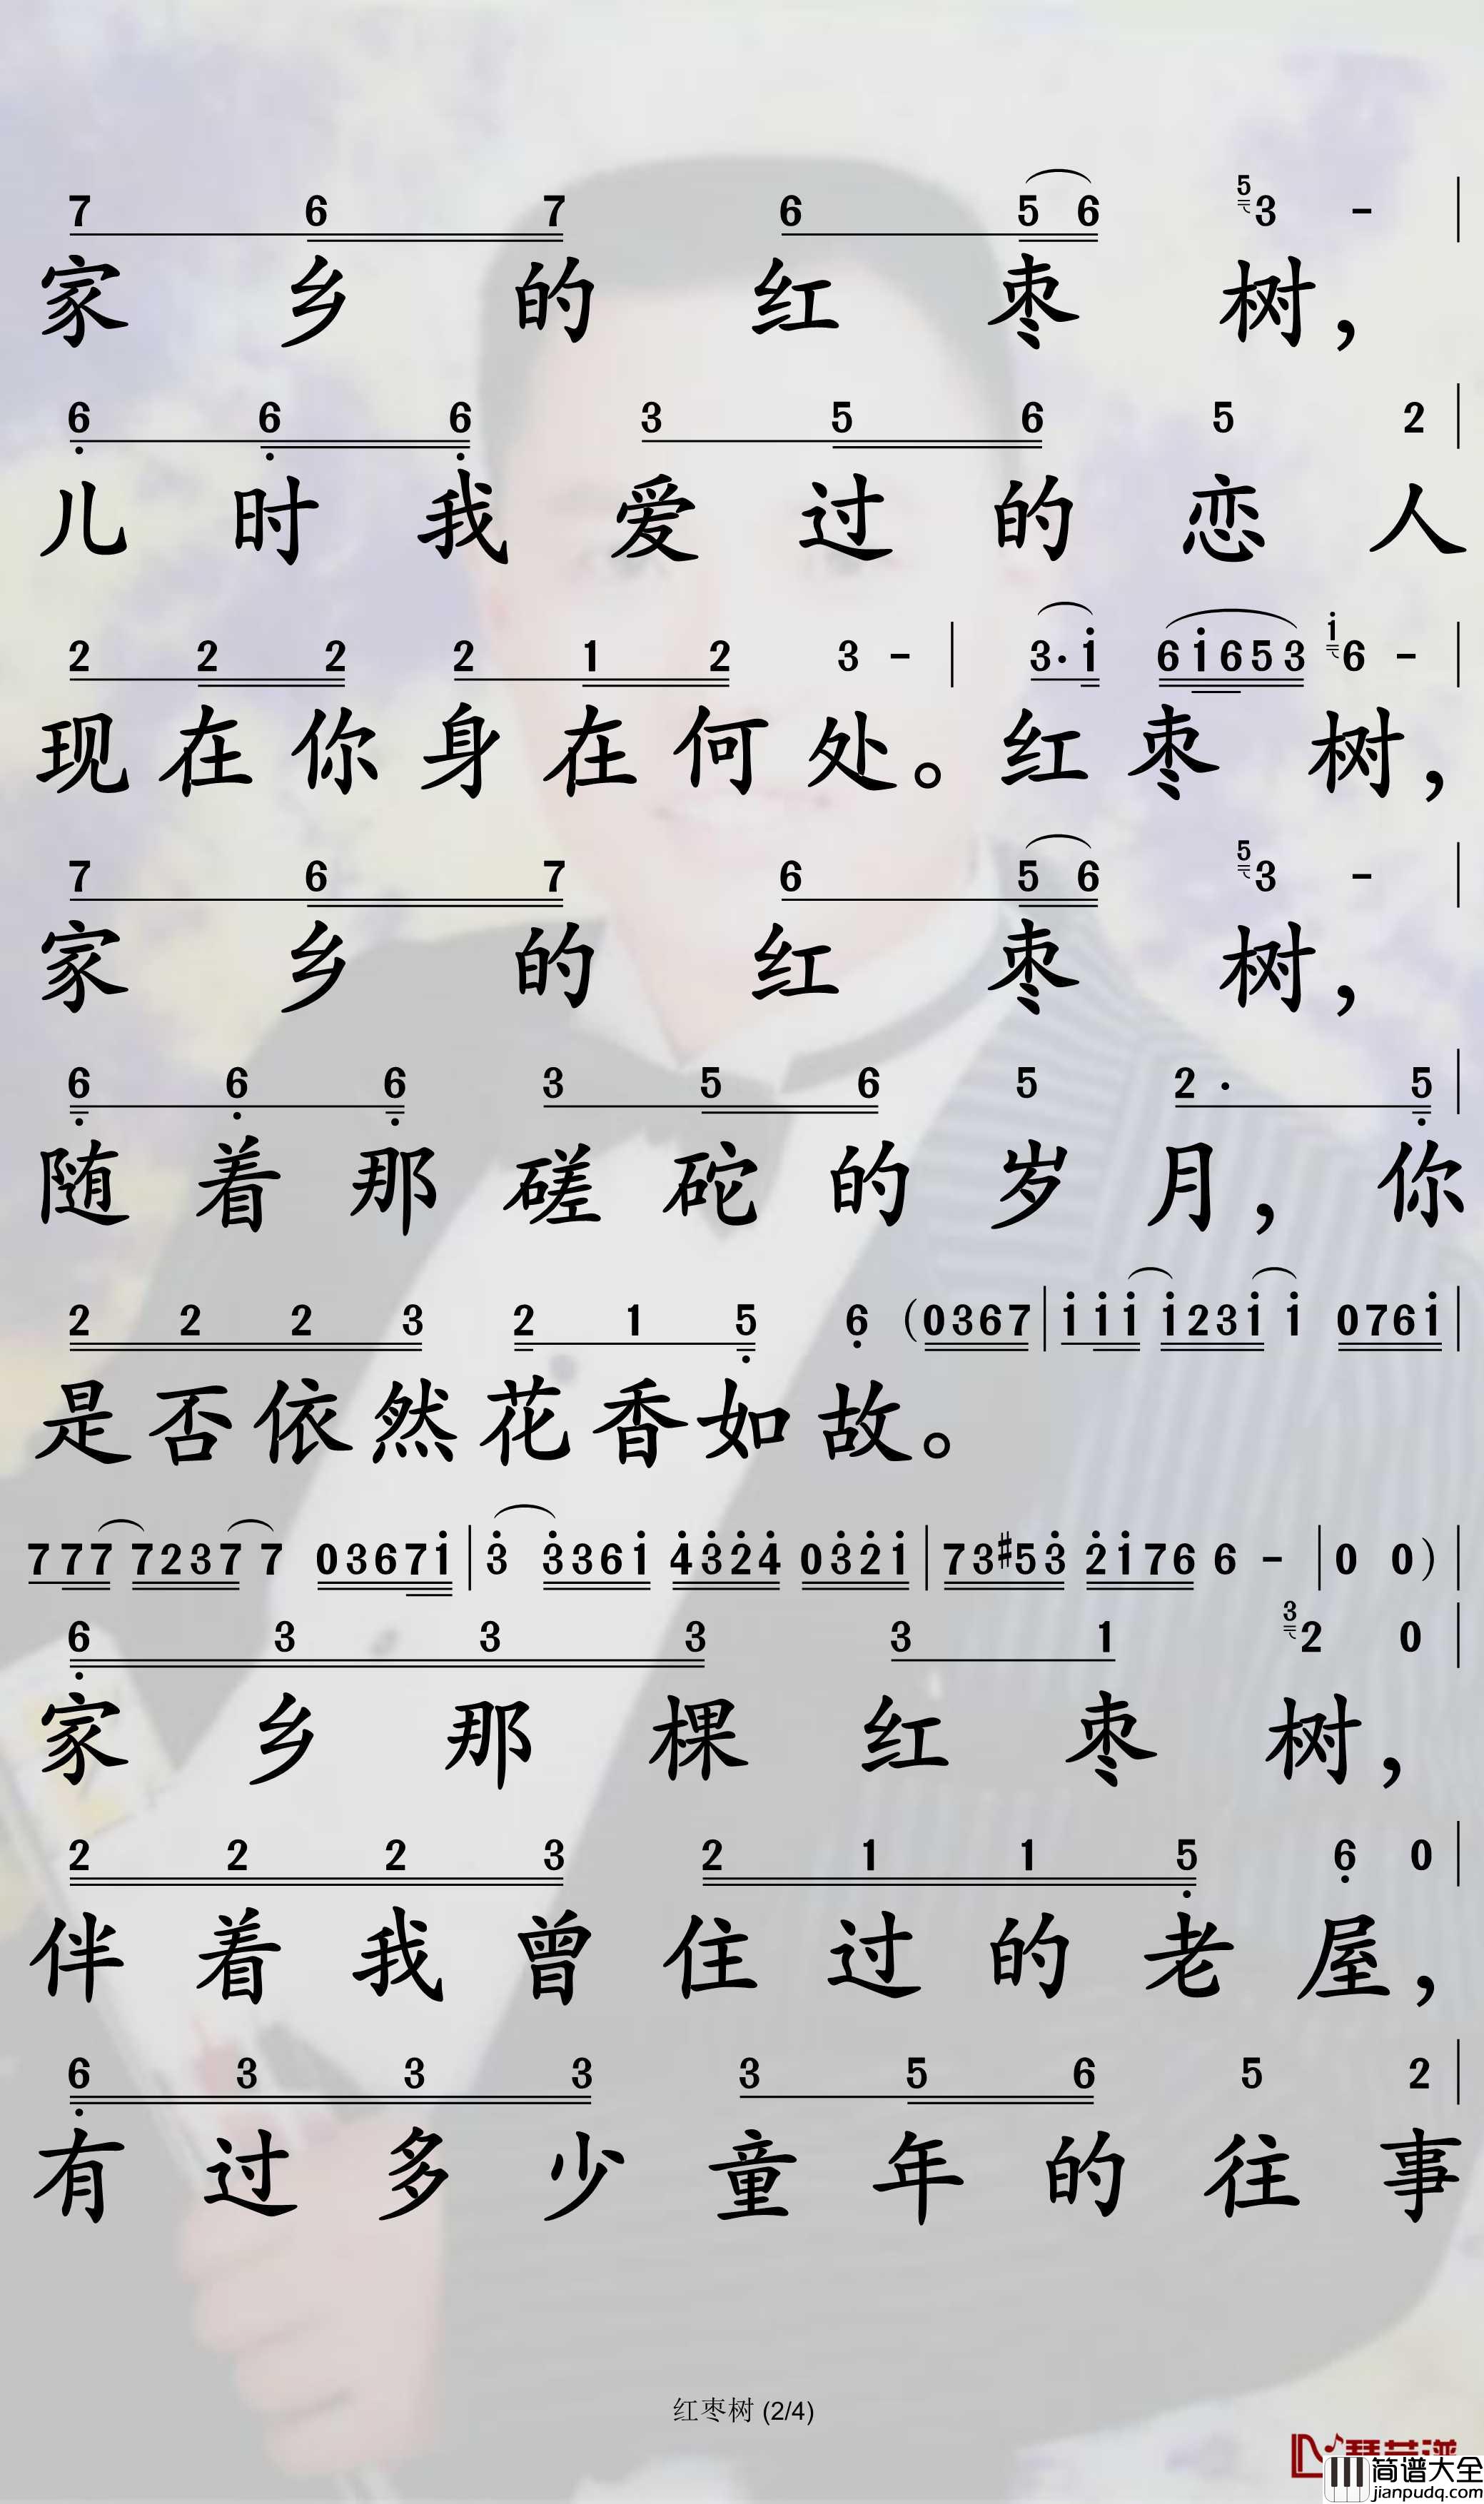 7 6 7 6 5 6 5 3 - |
家 乡 的 红 枣 树，
6 6 6 3 5 6 5 2 |
儿 时 我 爱 过 的 恋 人
2 2 2 2 1 2 3 - | 3· i 6 i 6 5 3 i 6 - |
现 在 你 身 在 何 处。 红 枣 树，
7 6 7 6 5 6 5 3 - |
家 乡 的 红 枣 树，
6 6 6 3 5 6 5 2 · 5 |
随 着 那 磋 砣 的 岁 月， 你
2 2 2 3 2 1 5 6 (0 3 6 7 | i i i i 2 3 i i 0 7 6 i |
是 否 依 然 花 香 如 故。
7 7 7 7 2 3 7 7 0 3 6 7 i | 3 3 3 6 i 4 3 2 4 0 3 2 i | 7 3 #5 3 2 i 7 6 6 - | 0 0 ) |
6 3 3 3 3 1 3 2 0 |
家 乡 那 棵 红 枣 树，
2 2 2 3 2 1 1 5 6 0 |
伴 着 我 曾 住 过 的 老 屋，
6 3 3 3 3 5 6 5 2 |
有 过 多 少 童 年 的 往 事
红枣树 (2/4)
简谱大全
jianpudq.com